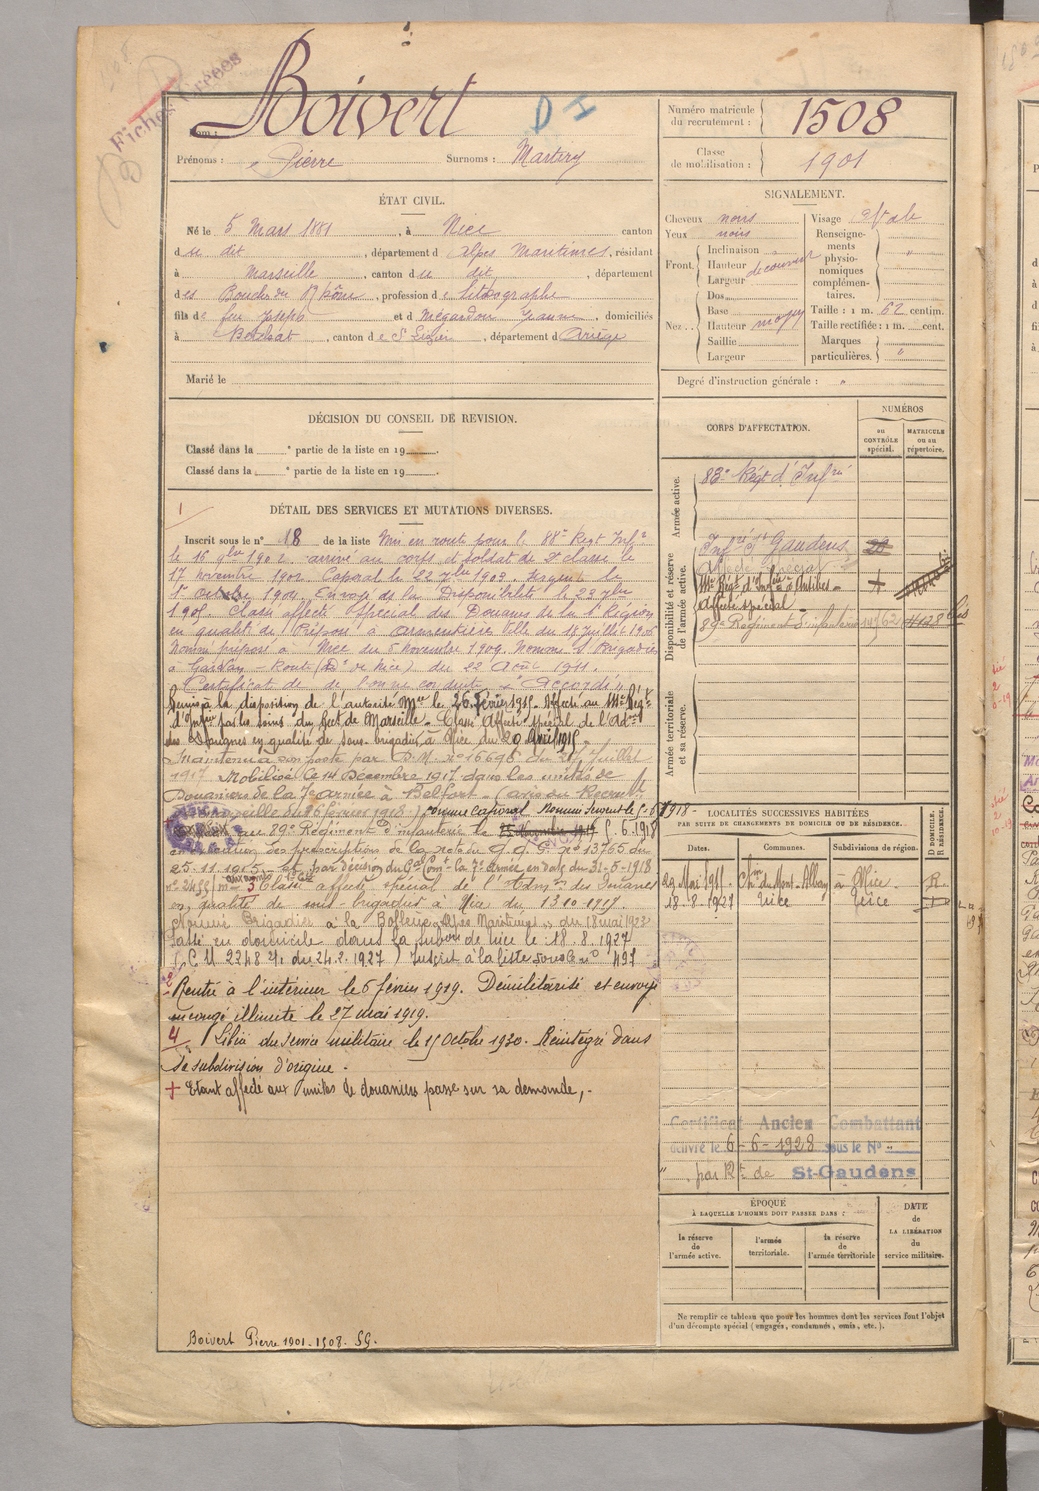 Fiches Créées
Nom : Boivert
D I
Prénoms : Pierre Surnoms :
Numéro matricule du recrutement : 1508
Classe de mobilisation : 1901
ÉTAT CIVIL.
Né le 5 Mars 1881, à Nice canton
du dit, département d Alpes Maritimes, résidant
à Marseille, canton du dit, département
des Bouches du Rhône, profession de lithographe
fils de feu Joseph et d Mégardon Jeanne, domiciliés
à Betchat, canton de St Lizier, département d Ariège
Marié le
SIGNALEMENT.
Cheveux noirs Visage ovale
Yeux noirs
Front. Inclinaison Hauteur découvert Largeur
Nez. Dos Base Hauteur moyen Saillie Largeur
Renseignements physionomiques complémentaires. "
Taille : 1 m. 62 centim.
Taille rectifiée : 1 m. cent.
Marques particulières. "
Degré d'instruction générale : "
DÉCISION DU CONSEIL DE REVISION.
Classé dans la e partie de la liste en 19 .
Classé dans la e partie de la liste en 19 .
CORPS D'AFFECTATION.
NUMÉROS
au CONTRÔLE spécial.
MATRICULE ou au répertoire.
Armée active.
83e Régt d'Infrie
Disponibilité et réserve de l'armée active.
Infrie St Gaudens
Affecté spécial
111e Régt d'Infrie à Antibes
Affecté spécial
89e Régiment d'infanterie
Armée territoriale et sa réserve.
DÉTAIL DES SERVICES ET MUTATIONS DIVERSES.
1
Inscrit sous le n° 18 de la liste Mis en route pour le 88e Régt Infie
le 16 9bre 1902 arrivé au corps et soldat de 2e classe le
17 novembre 1902. Caporal le 22 7bre 1903. Sergent le
1er Octobre 1904. Envoyé de la Disponibilité le 23 7bre
1905. Classé affecté spécial des Douanes de la 1e Région
en qualité de Préposé à Armentières Ville du 18 Juillet 1906
Nommé préposé à Nice du 5 novembre 1909. Nommé S/ Brigadier
à Garavan - Route (Don de Nice) du 22 Août 1911.
Certificat de bonne conduite "Accordé"
Remis à la disposition de l'autorité Mre le 26 février 1915. Affecté au 111e Régt
d'Infrie par les soins du Rect de Marseille. Classé Affecté spécial de l'Adon
des Douanes en qualité de sous-brigadier à Nice du 20 Avril 1915
Maintenu à son poste par D.M. n° 16696 du Juillet
1917. Mobilisé le 14 Décembre 1917 dans les unités de
Douaniers de la 7e armée à Belfort (avis du Recrutt
Marseille du 26 février 1918.) comme Caporal Nommé Sergent le 5-6-1918-
au 89e Régiment d'infanterie le 5.6.1918
en exécution des prescriptions de la note du G.Q.G. n° 13765 du
25-11-1915 et par décision du Gal Comt la 7e Armée en date du 31-5-1918
3 Classé affecté spécial de l'Admon des Douanes
en qualité de sous-brigadier à Nice du 13.10.1919.
Nommé Brigadier à la Bollène (Alpes Maritimes) du 18 mai 1923
Passé en domicile dans la subon de Nice le 18.8.1927
(C M 2248 2/1 du 24.2.1927) Inscrit à la liste sous le n° 497
2 Rentré à l'intérieur le 6 février 1919. Démilitarisé et envoyé
en congé illimité le 27 mai 1919.
4 Libéré du service militaire le 15 Octobre 1930. Réintégré dans
sa subdivision d'origine.
+ Etant affecté aux unités de douaniers passé sur sa demande,-
LOCALITÉS SUCCESSIVES HABITÉES
PAR SUITE DE CHANGEMENTS DE DOMICILE OU DE RÉSIDENCE.
Dates. Communes. Subdivisions de région. D DOMICILE. R RÉSIDENCE.
29 Mai 1911 Chin du Mont-Alban à Nice Nice R
18-8-1927 Nice Nice D
Certificat Ancien Combattant
délivré le 6-6-1928 sous le N° "
par Rt de St-Gaudens
ÉPOQUE
À LAQUELLE L'HOMME DOIT PASSER DANS :
la réserve de l'armée active.
l'armée territoriale.
la réserve de l'armée territoriale
DATE de LA LIBÉRATION du service militaire.
Ne remplir ce tableau que pour les hommes dont les services font l'objet
d'un décompte spécial (engagés, condamnés, omis, etc.).
Boivert Pierre 1901-1508. SG.